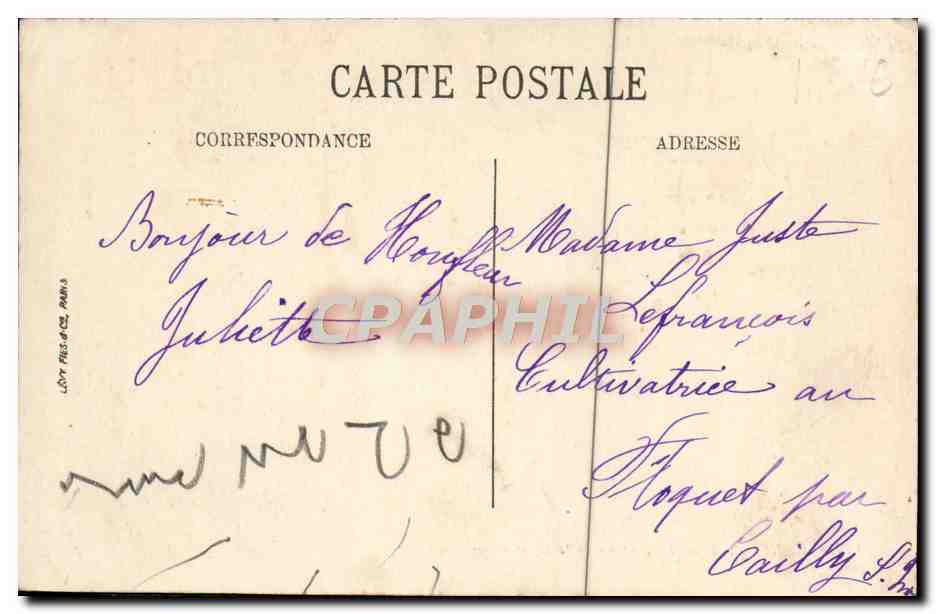 CARTE POSTALE
CORRESPONDANCE
ADRESSE
Bonjour de Honfleur
Juliette
Madame Juste
Lefrançois
Cultivatrice au
Floquet par
Cailly S.
LÉVY FILS & Cie, PARIS
CPAPHIL